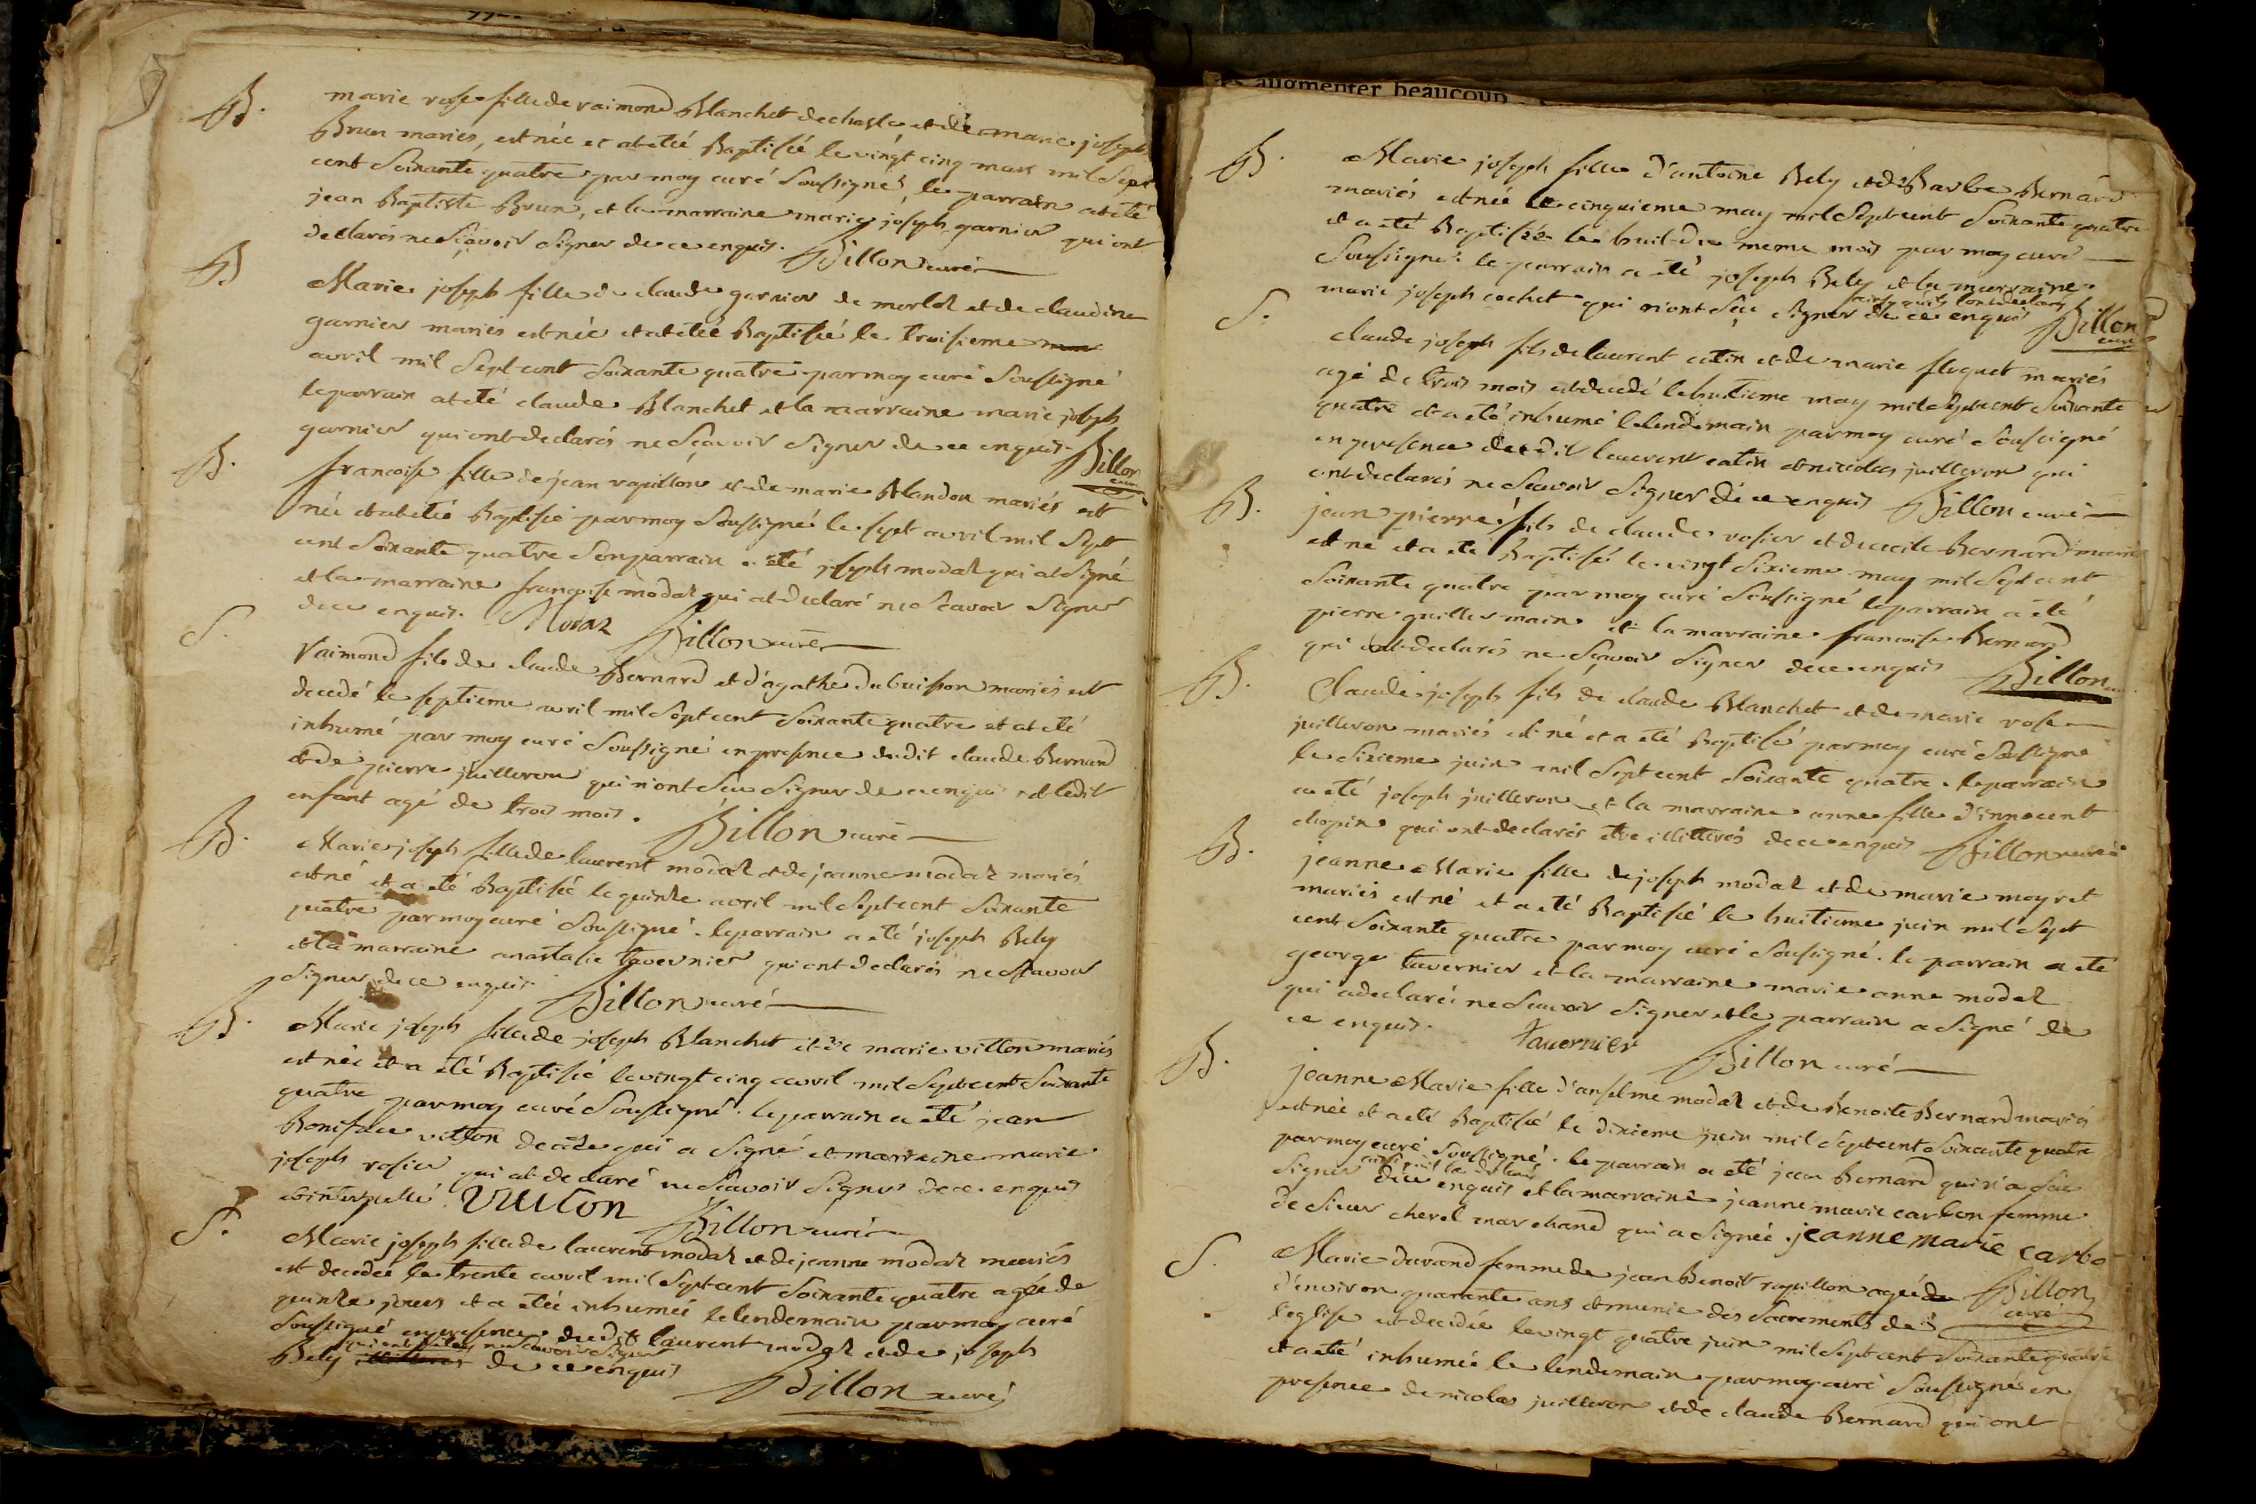 B. marie rose fille de raimond Blanchet de chasle et de marie joseph
Brun mariés, est née et at eté Baptisée le vingt cinq mars mil sept
cent soixante quatre par moy curé soussigné le parrain at eté
jean Baptiste Brun, et la marraine marie joseph garnier qui ont
declarés ne sçavoir signer de ce enquis. Billon curé
B Marie joseph fille de claude garnier de morlot et de claudine
garnier mariés est née et at eté Baptisée le troisieme
avril mil sept cent soixante quatre par moy curé soussigné
le parrain at eté claude Blanchet et la marraine marie joseph
garnier qui ont declarés ne sçavoir signer de ce enquis. Billon
curé
B. francoise fille de jean rapillon et de marie Blandon mariés est
née et at eté Baptisée par moy soussigné le sept avril mil sept
cent soixante quatre son parrain a eté joseph modaz qui at signé
et la marraine francoise modaz qui at declaré ne scavoir signer
de ce enquis. Modaz Billon curé
S. Raimond fils de claude Bernard et d'agathe dubuisson mariés est
decedé le septieme avril mil sept cent soixante quatre et at eté
inhumé par moy curé soussigné en presence dudit claude Bernard
et de pierre juilleron qui n'ont sçu signer de ce enquis et ledit
enfant agé de trois mois. Billon curé
B. Marie joseph fille de laurent modaz et de jeanne modaz mariés
est né et a eté Baptisée le quinze avril mil sept cent soixante
quatre par moy curé soussigné. le parrain a eté joseph Bely
et la marraine anastasie tavernier qui ont declarés ne scavoir
signer de ce enquis Billon curé
B. Marie joseph fille de joseph Blanchet et de marie vitton mariés
est née et a eté Baptisée le vingt cinq avril mil sept cent soixante
quatre par moy curé soussigné. le parrain a eté jean
Boniface vitton qui a signé et marraine marie
joseph rosier qui at declaré ne scavoir signer de ce enquis
et interpellé. Vuiton Billon curé
S. Marie joseph fille de laurent modaz et de jeanne modaz mariés
est decedée le trente avril mil sept cent soixante quatre agée de
quinze jours et a eté inhumée le lendemain par moy curé
soussigné en presence dudit laurent modaz et de joseph
ne scavoir signer
Bely de ce enquis
Billon curé
augmenter beaucoup
B. Marie joseph fille d'antoine Bely et de Barbe Bernard
mariés est née le cinquieme may mil sept cent soixante quatre
et a eté Baptisée le huit du meme mois par moy curé
soussigné. le parrain a eté joseph Bely et la marraine
marie joseph cochet qui n'ont sçu signer de ce enquis
ainsy qu'ils l'ont declaré Billon
curé
S. claude joseph fils de laurent catin et de marie fluquet mariés
agé de trois mois est decedé le huitieme may mil sept cent soixante
quatre et a eté inhumé le lendemain par moy curé soussigné
en presence dudit laurent catin et nicolas juilleron qui
ont declarés ne scavoir signer de ce enquis Billon curé
B. jean pierre fils de claude rosier et de cecile Bernard mariés
est né et a eté Baptisé le vingt sixieme may mil sept cent
soixante quatre par moy curé soussigné le parrain a eté
pierre guillermain et la marraine francoise Bernard
qui ont declarés ne sçavoir signer de ce enquis Billon
B. Claude joseph fils de claude Blanchet et de marie rose
juilleron mariés est né et a eté Baptisé par moy curé soussigné
le sixieme juin mil sept cent soixante quatre. le parrain
a eté joseph juilleron et la marraine anne fille d'innocent
chopin qui ont declarés etre illitterés de ce enquis Billon curé
B. jeanne Marie fille de joseph modaz et de marie moyret
mariés est né et a eté Baptisée le huitieme juin mil sept
cent soixante quatre par moy curé soussigné. le parrain a eté
george tavernier et la marraine marie anne modaz
qui a declaré ne scavoir signer et le parrain a signé de
ce enquis. Tavernier Billon curé
B. jeanne Marie fille d'anselme modaz et de Benoite Bernard mariés
est née et a eté Baptisée le dixieme juin mil sept cent soixante quatre
par moy curé soussigné. le parrain a eté jean Bernard qui n'a sçu
ainsi qu'il l'a declaré
signer de ce enquis et la marraine jeanne marie carbon femme
de sieur cheval marchand qui a signée. jeanne marie carbo
S. Marie durand femme de jean Benoit rapillon agée Billon
curé
d'environ quarante ans et munie des sacrements de
l'eglise est decedée le vingt quatre juin mil sept cent soixante quatre
et a eté inhumée le lendemain par moy curé soussigné en
presence de nicolas juilleron et de claude Bernard qui ont